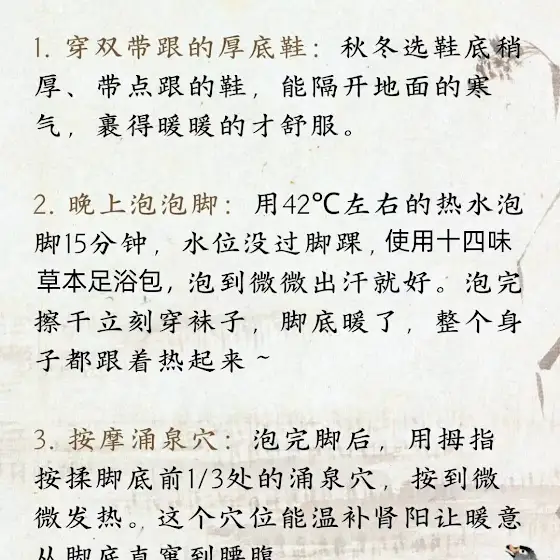 1. 穿双带跟的厚底鞋：秋冬选鞋底稍
厚、带点跟的鞋，能隔开地面的寒
气，裹得暖暖的才舒服。
2. 晚上泡泡脚：用42℃左右的热水泡
脚15分钟，水位没过脚踝，使用十四味
草本足浴包，泡到微微出汗就好。泡完
擦干立刻穿袜子，脚底暖了，整个身
子都跟着热起来~
3. 按摩涌泉穴：泡完脚后，用拇指
按揉脚底前1/3处的涌泉穴，按到微
微发热。这个穴位能温补肾阳让暖意
从脚底直窜到腰腹